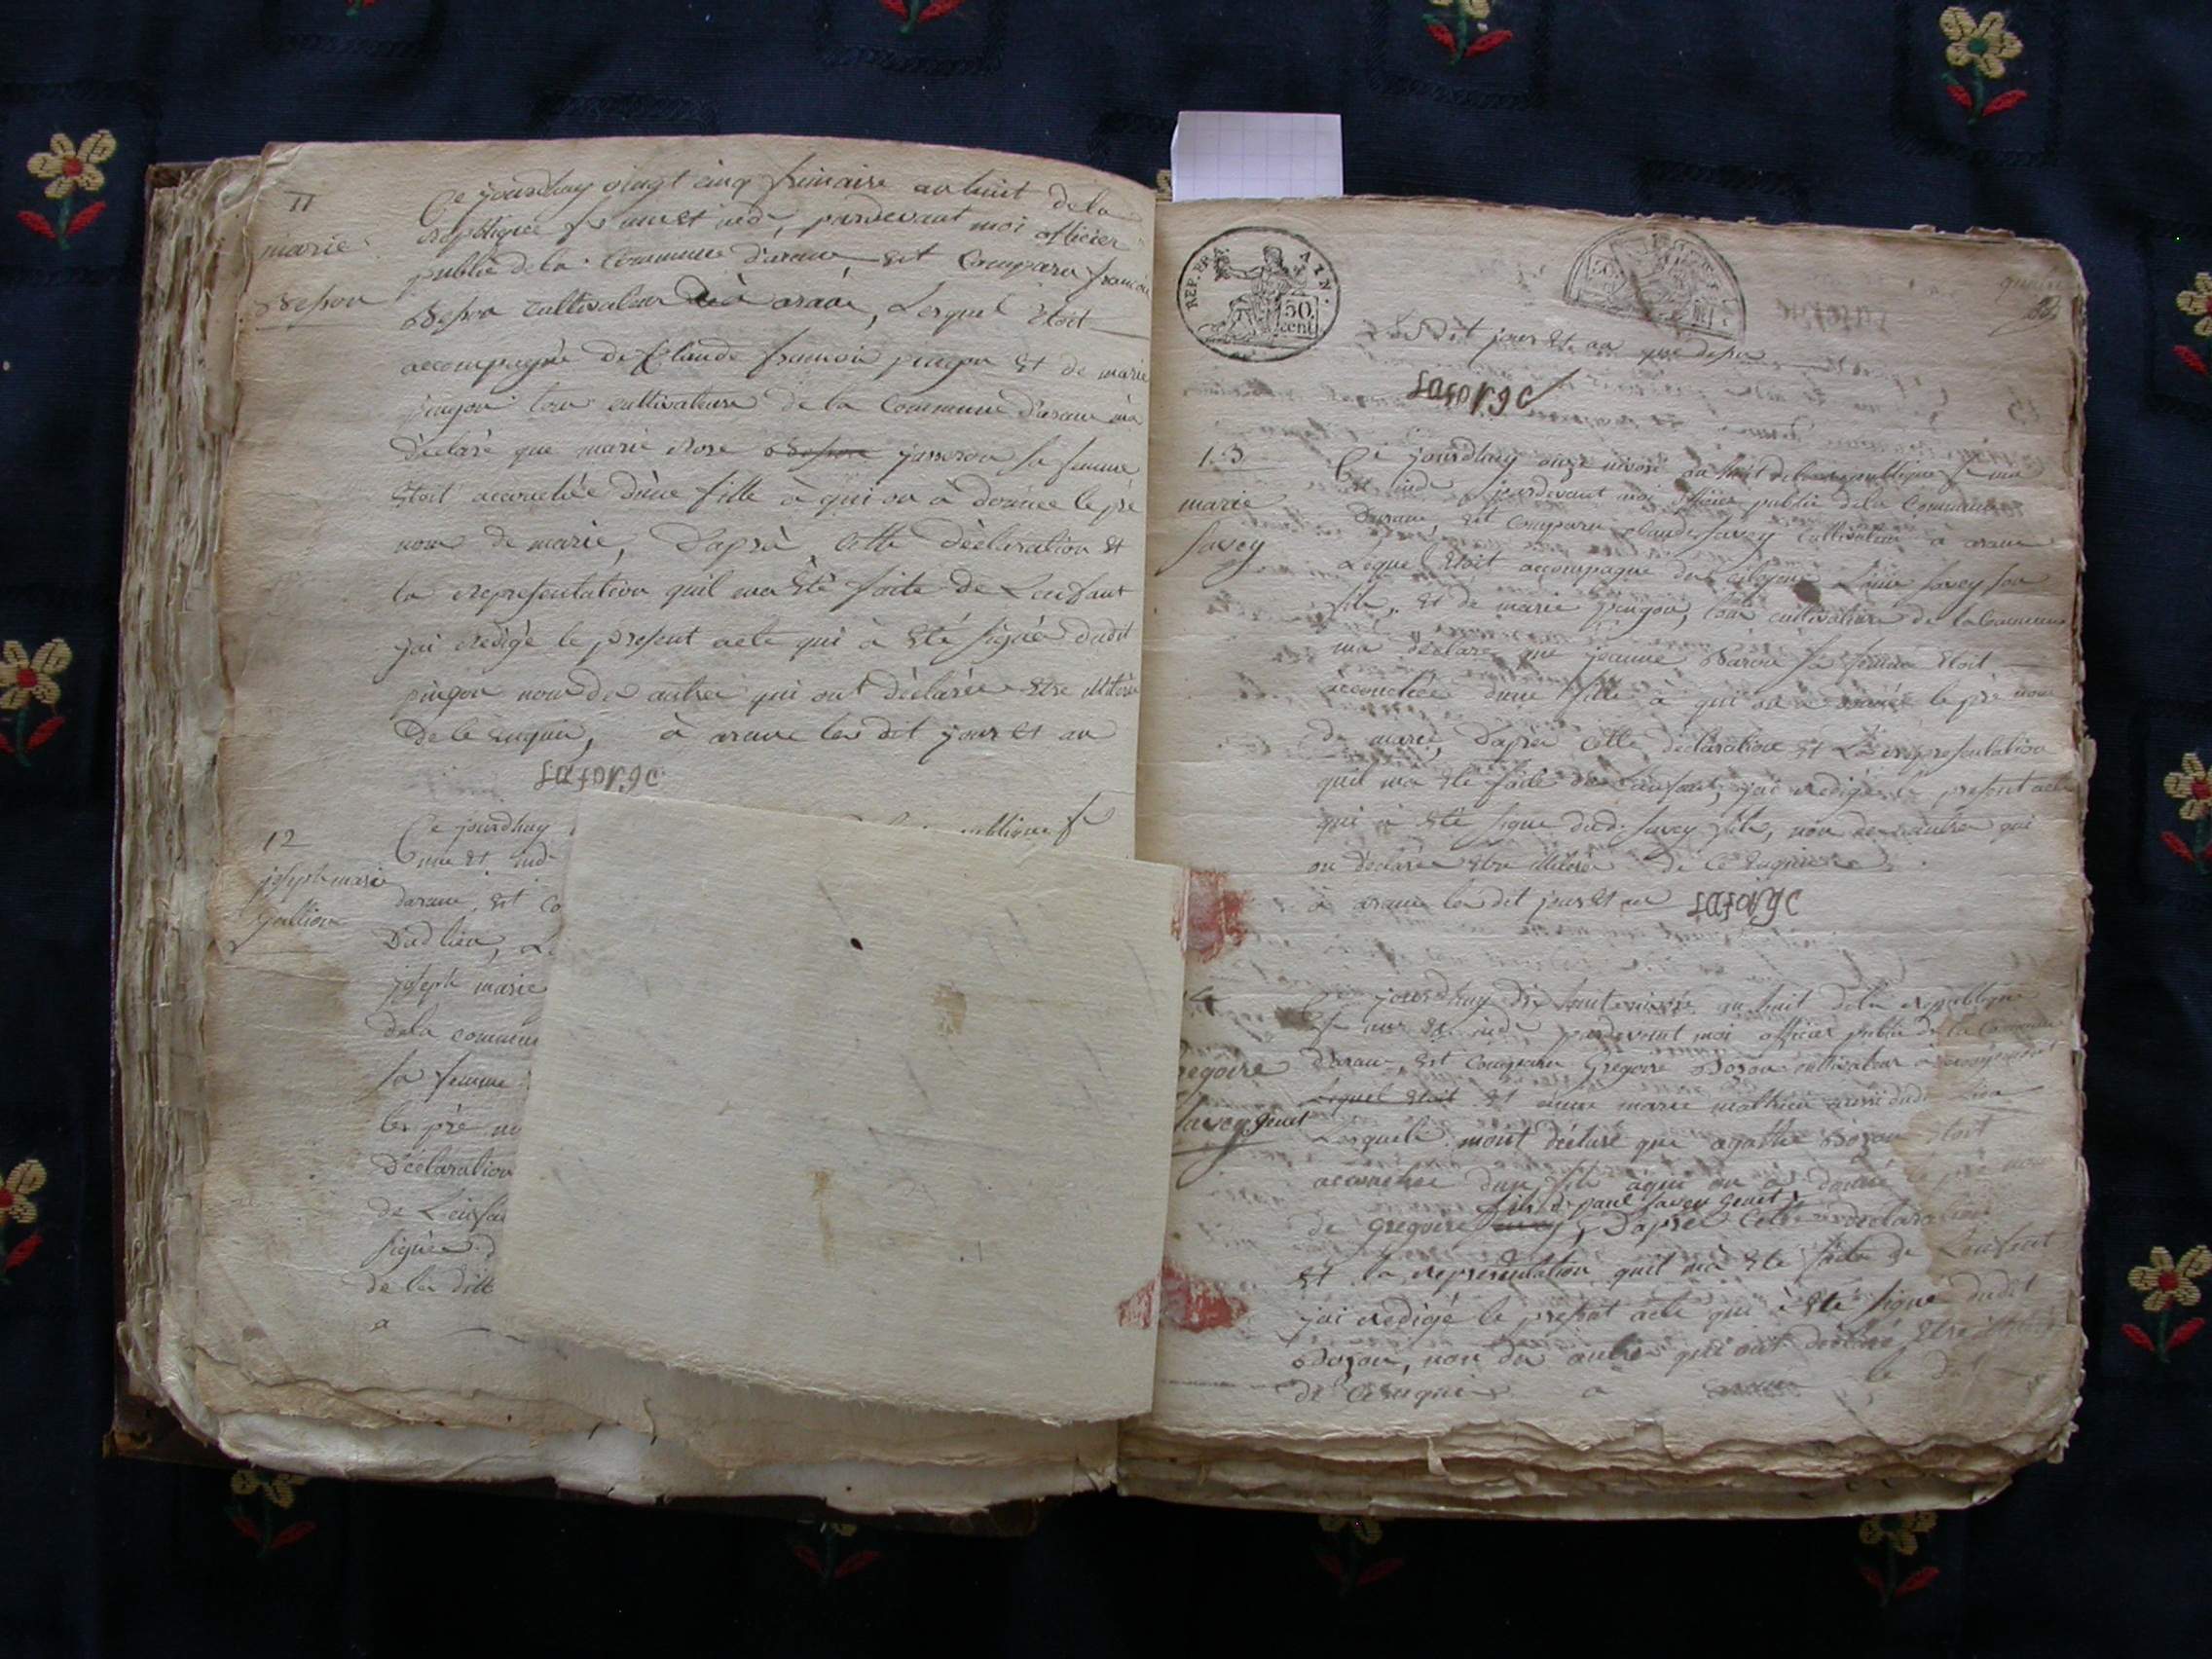 11
marie
Besson
Ce jourdhuy vingt cinq frimaire an huit de la
republique fse une et ind, pardevant moi officier
public de la Commune d'arane est Comparu francois
Besson Cultivateur à arane, Lequel Etoit
accompagné de Claude francois pingon Et de marie
pingon tous cultivateurs de la Commune d'arane ma
déclaré que marie Rose Besson jasseron sa femme
Etoit accouchée d'une fille à qui on à donnée le pré
nom de marie, D'après cette Déclaration Et
la representation quil ma Eté faite de Lenfant
jai rédigé le present acte qui à Eté signé dudit
pingon non des autres qui ont déclarés Etre illiterés
De ce Enquis, à arane les dit jour Et an
Laforge
12
joseph marie
Gallion
Ce jourdhuy
republique fse
une Et ind
darane, Est Co
Dud lieu, Le
joseph marie
dela commun
sa femme
les pré no
Déclaration
de Lenfan
signée d
de la ditte
a
REP. FRA
ATN.
50.
cent.
Les dit jour Et an que dessu
Laforge
13
marie
Savey
Ce jourdhuy onze nivose an huit de la republique fse une
Et ind pardevant moi officier public dela Commune
Darane, Est Comparu claude Savey Cultivateur à arane
Lequel Etoit accompagné des citoyens Savey son
fils, Et de marie pingon, tous cultivateurs de la Commune
ma déclaré que jeanne Baron sa femme Etoit
accouchée dune fille à qui on a donnée le pré nom
de marie, D'après cette déclaration Et La representation
quil ma Eté faite de Lenfant, jai redigé le present acte
qui à Eté signé dud. Savey fils, non des autres qui
on déclarés Etre illiterés De Ce Enquis
à arane les dit jour Et an Laforge
Gregoire
Savey Genet
Ce jourdhuy dix huit nivose an huit dela republique
fse une Et ind pardevant moi officier public de la Commune
Darane, Est Comparu Gregoire Bozon cultivateur à
Lequel Etoit Et marie mathieu aussi dud. Lieu
Lesquels mont déclaré que agathe Bozon Etoit
accouchée dun fils à qui on à donné le pré nom
fils de paul Savey Genet
de Gregoire Savey, D'après Cette declaration
Et la representation quil mà Eté faite de Lenfant
jai redigé le present acte qui à Eté signé dudit
Bozon, non des autres qui ont déclaré Etre
de Ce Enquis a arane le dit